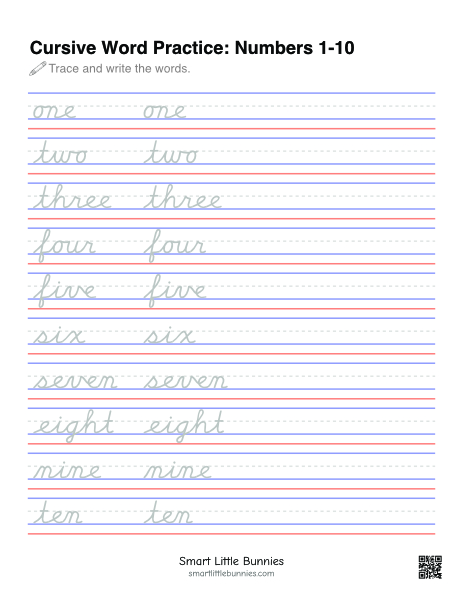 Cursive Word Practice: Numbers 1-10
Trace and write the words.
one one
two two
three three
four four
five five
six six
seven seven
eight eight
nine nine
ten ten
Smart Little Bunnies
smartlittlebunnies.com